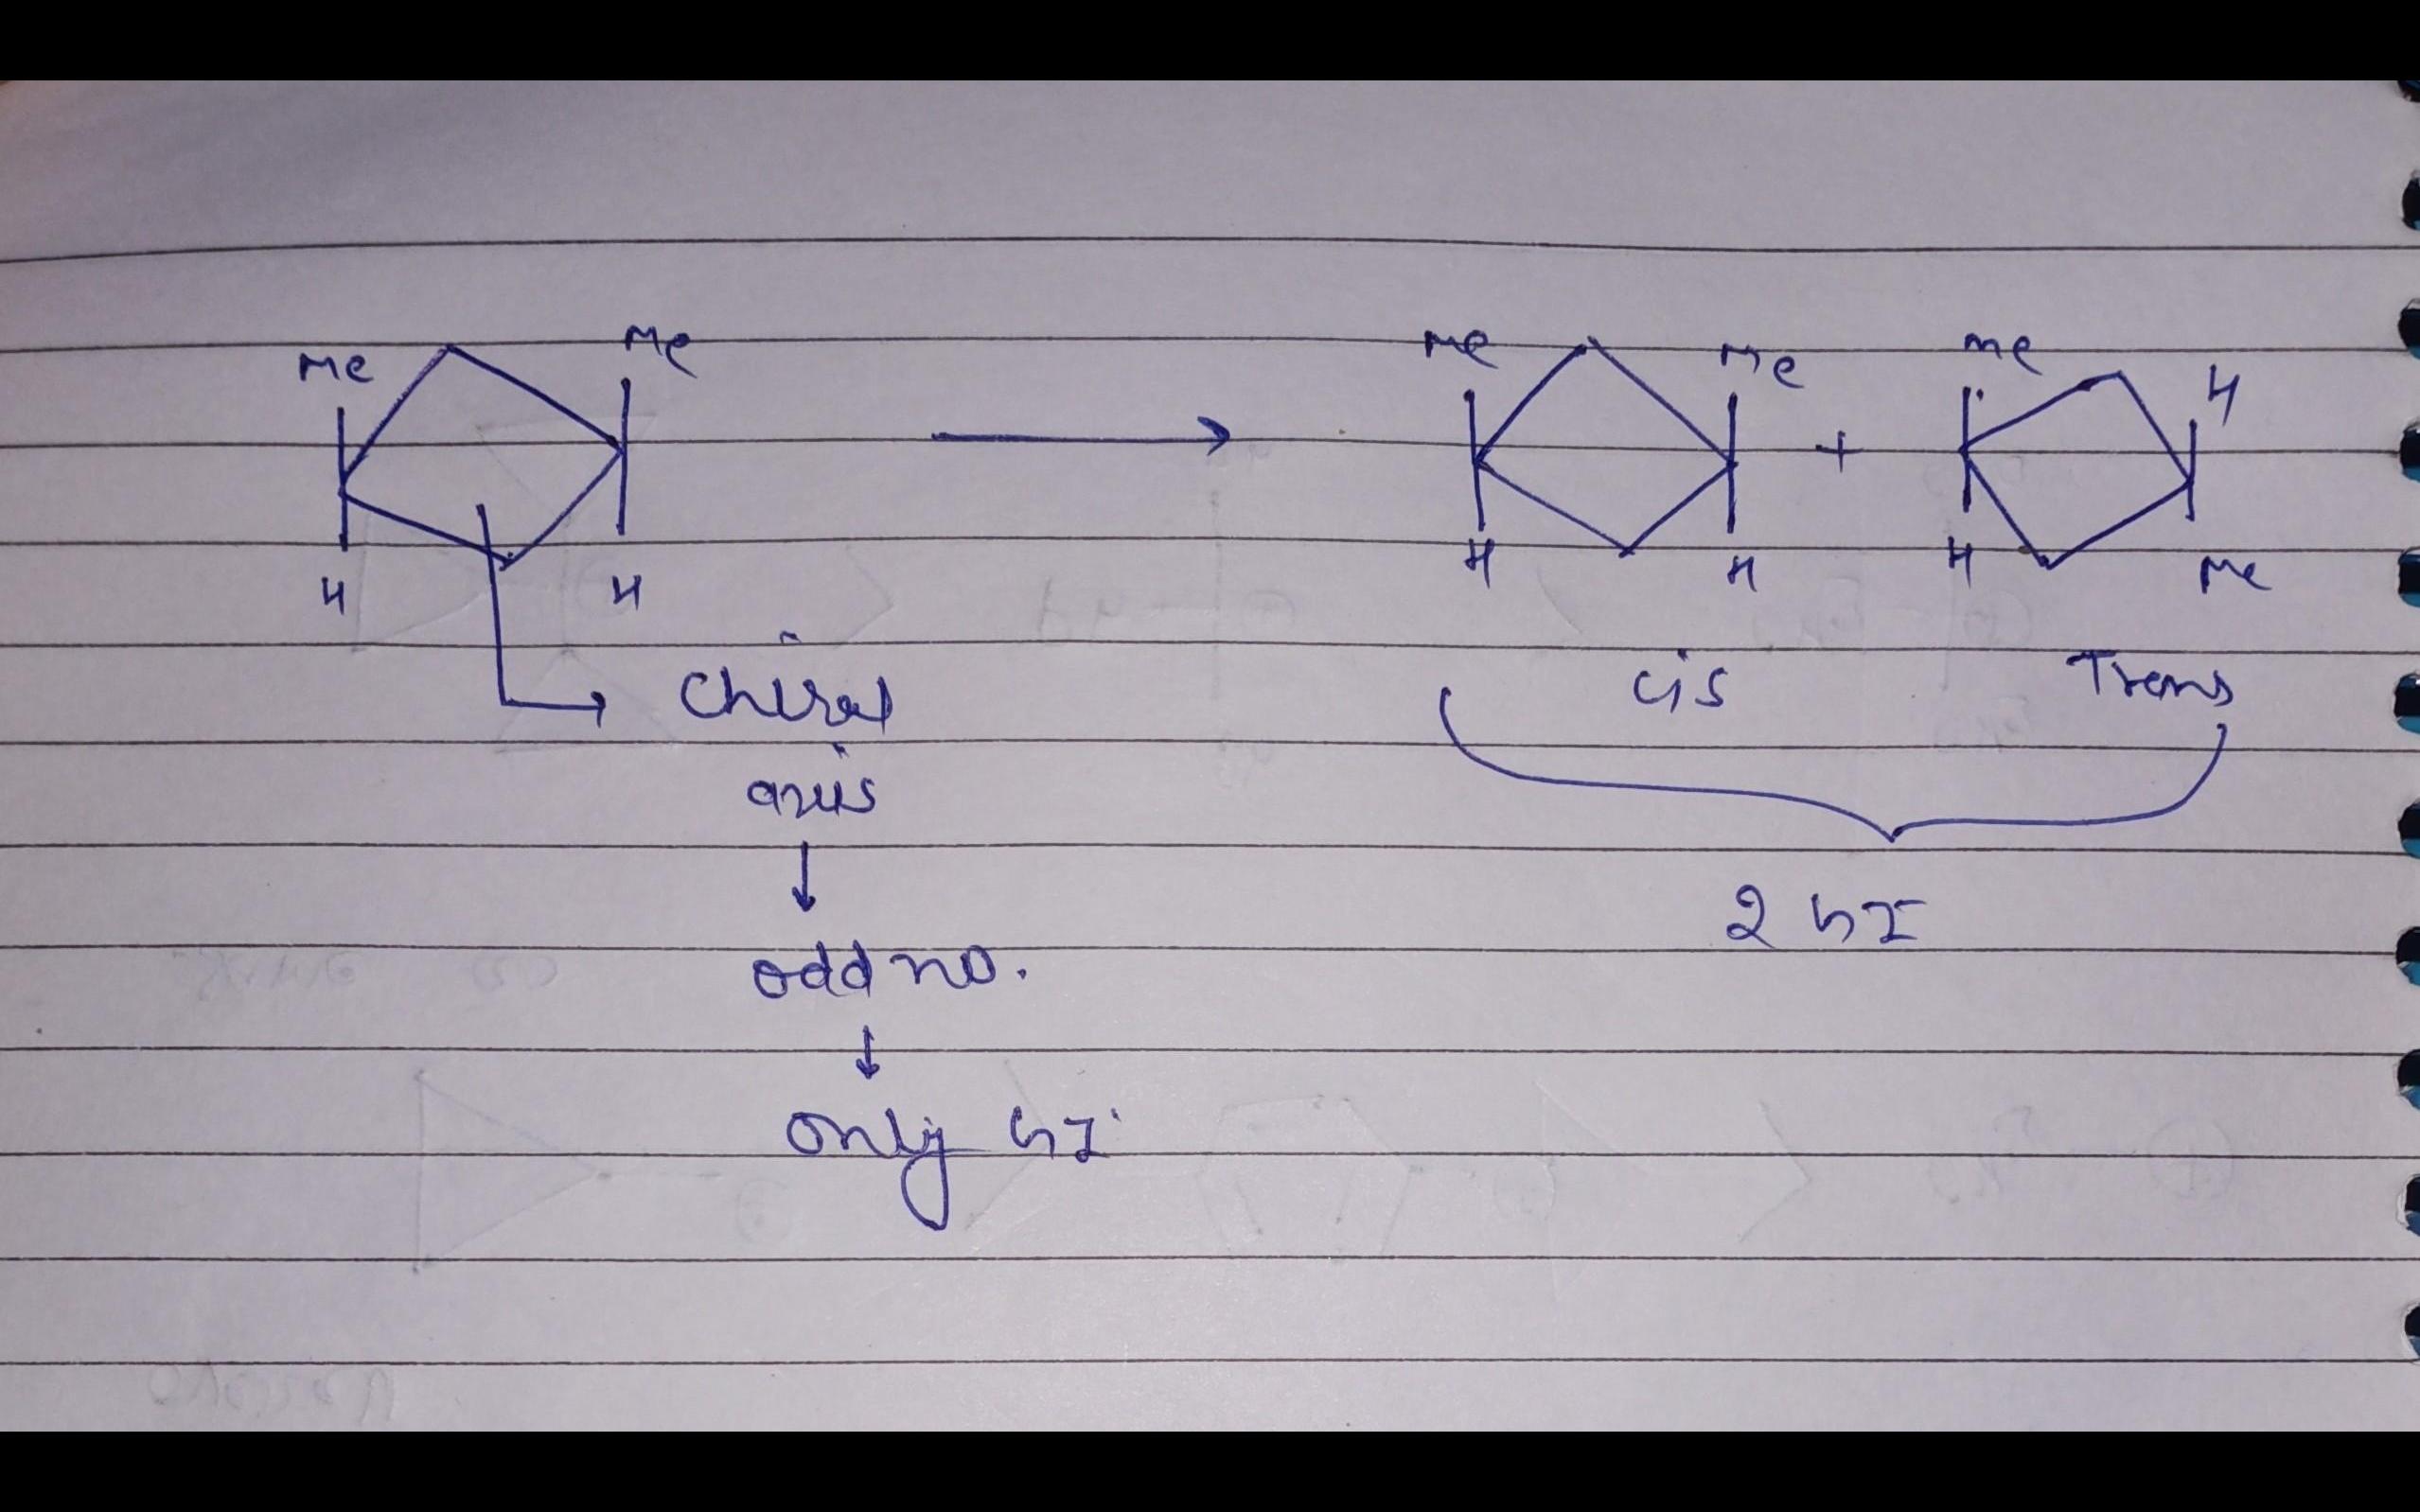 Me Me
H H
Me Me
H H
cis
+
me H
H Me
Trans
2 GI
Chiral
axis
odd no.
only GI